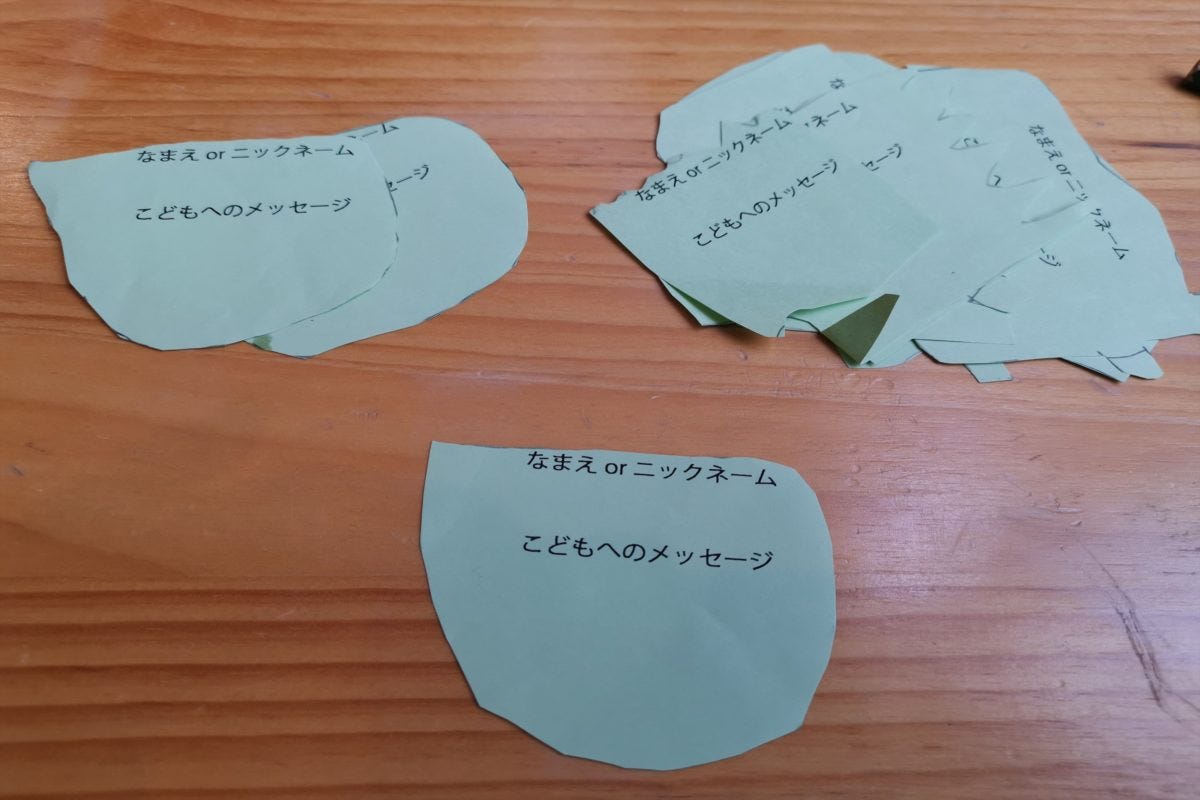 なまえ or ニックネーム
こどもへのメッセージ
ーム
ージ
なまえ or ニックネーム
こどもへのメッセージ
な
ネーム
セージ
なまえ or ニックネーム
ージ
なまえ or ニックネーム
こどもへのメッセージ